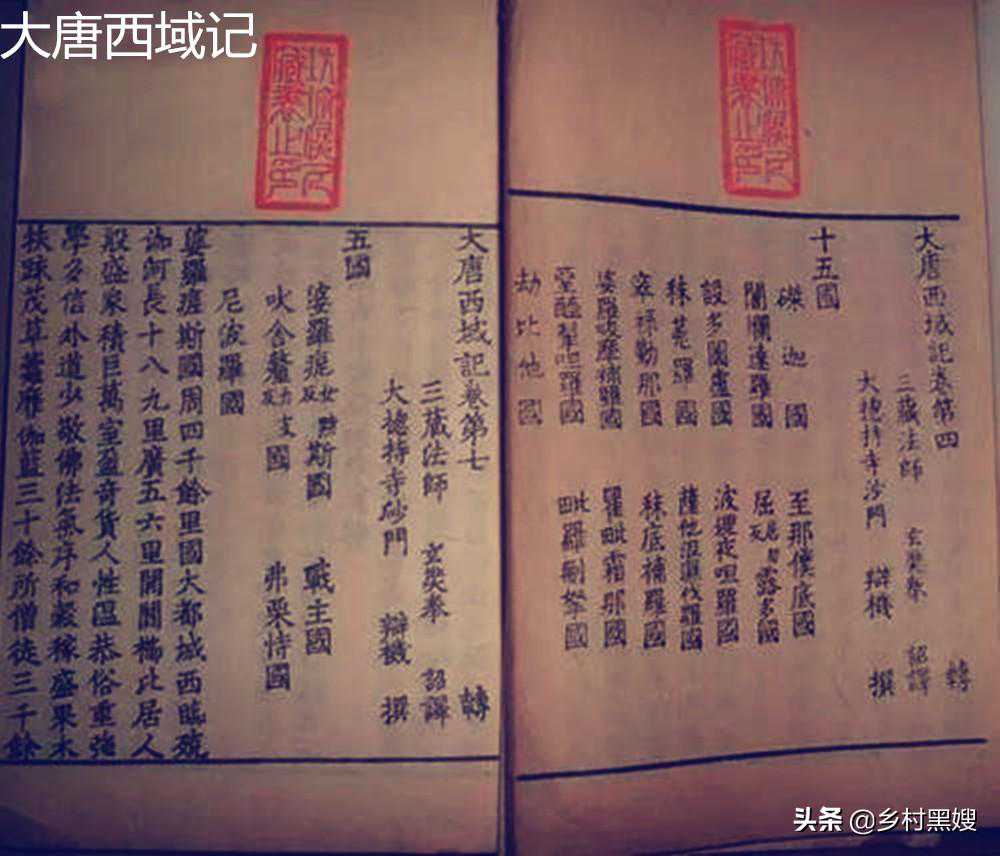 大唐西域记
大唐西域記卷第四 轉
三藏法師 玄奘奉 詔譯
大總持寺沙門 辯機 撰
十五國
磔迦國 至那僕底國
闍爛達羅國 屈居勿反露多國
設多圖盧國 波理夜呾羅國
秣菟羅國 薩他泥濕伐羅國
窣祿勤那國 秣底補羅國
婆羅吸摩補羅國 瞿毗霜那國
堊醯掣呾羅國 毗羅刪拏國
劫比他國
大唐西域記卷第七 轉
三藏法師 玄奘奉 詔譯
大總持寺砂門 辯機 撰
五國
婆羅痆女黠反斯國 戰主國
吠舍釐力支反國 弗栗恃國
尼波羅國
婆羅痆斯國周四千餘里國大都城西臨殑
伽河長十八九里廣五六里閭閻櫛比居人
殷盛家積巨萬室盈奇貨人性温恭俗重強
學多信外道少敬佛法氣序和穀稼盛果木
扶踈茂草藹靡伽藍三十餘所僧徒三千餘
头条 @乡村黑嫂